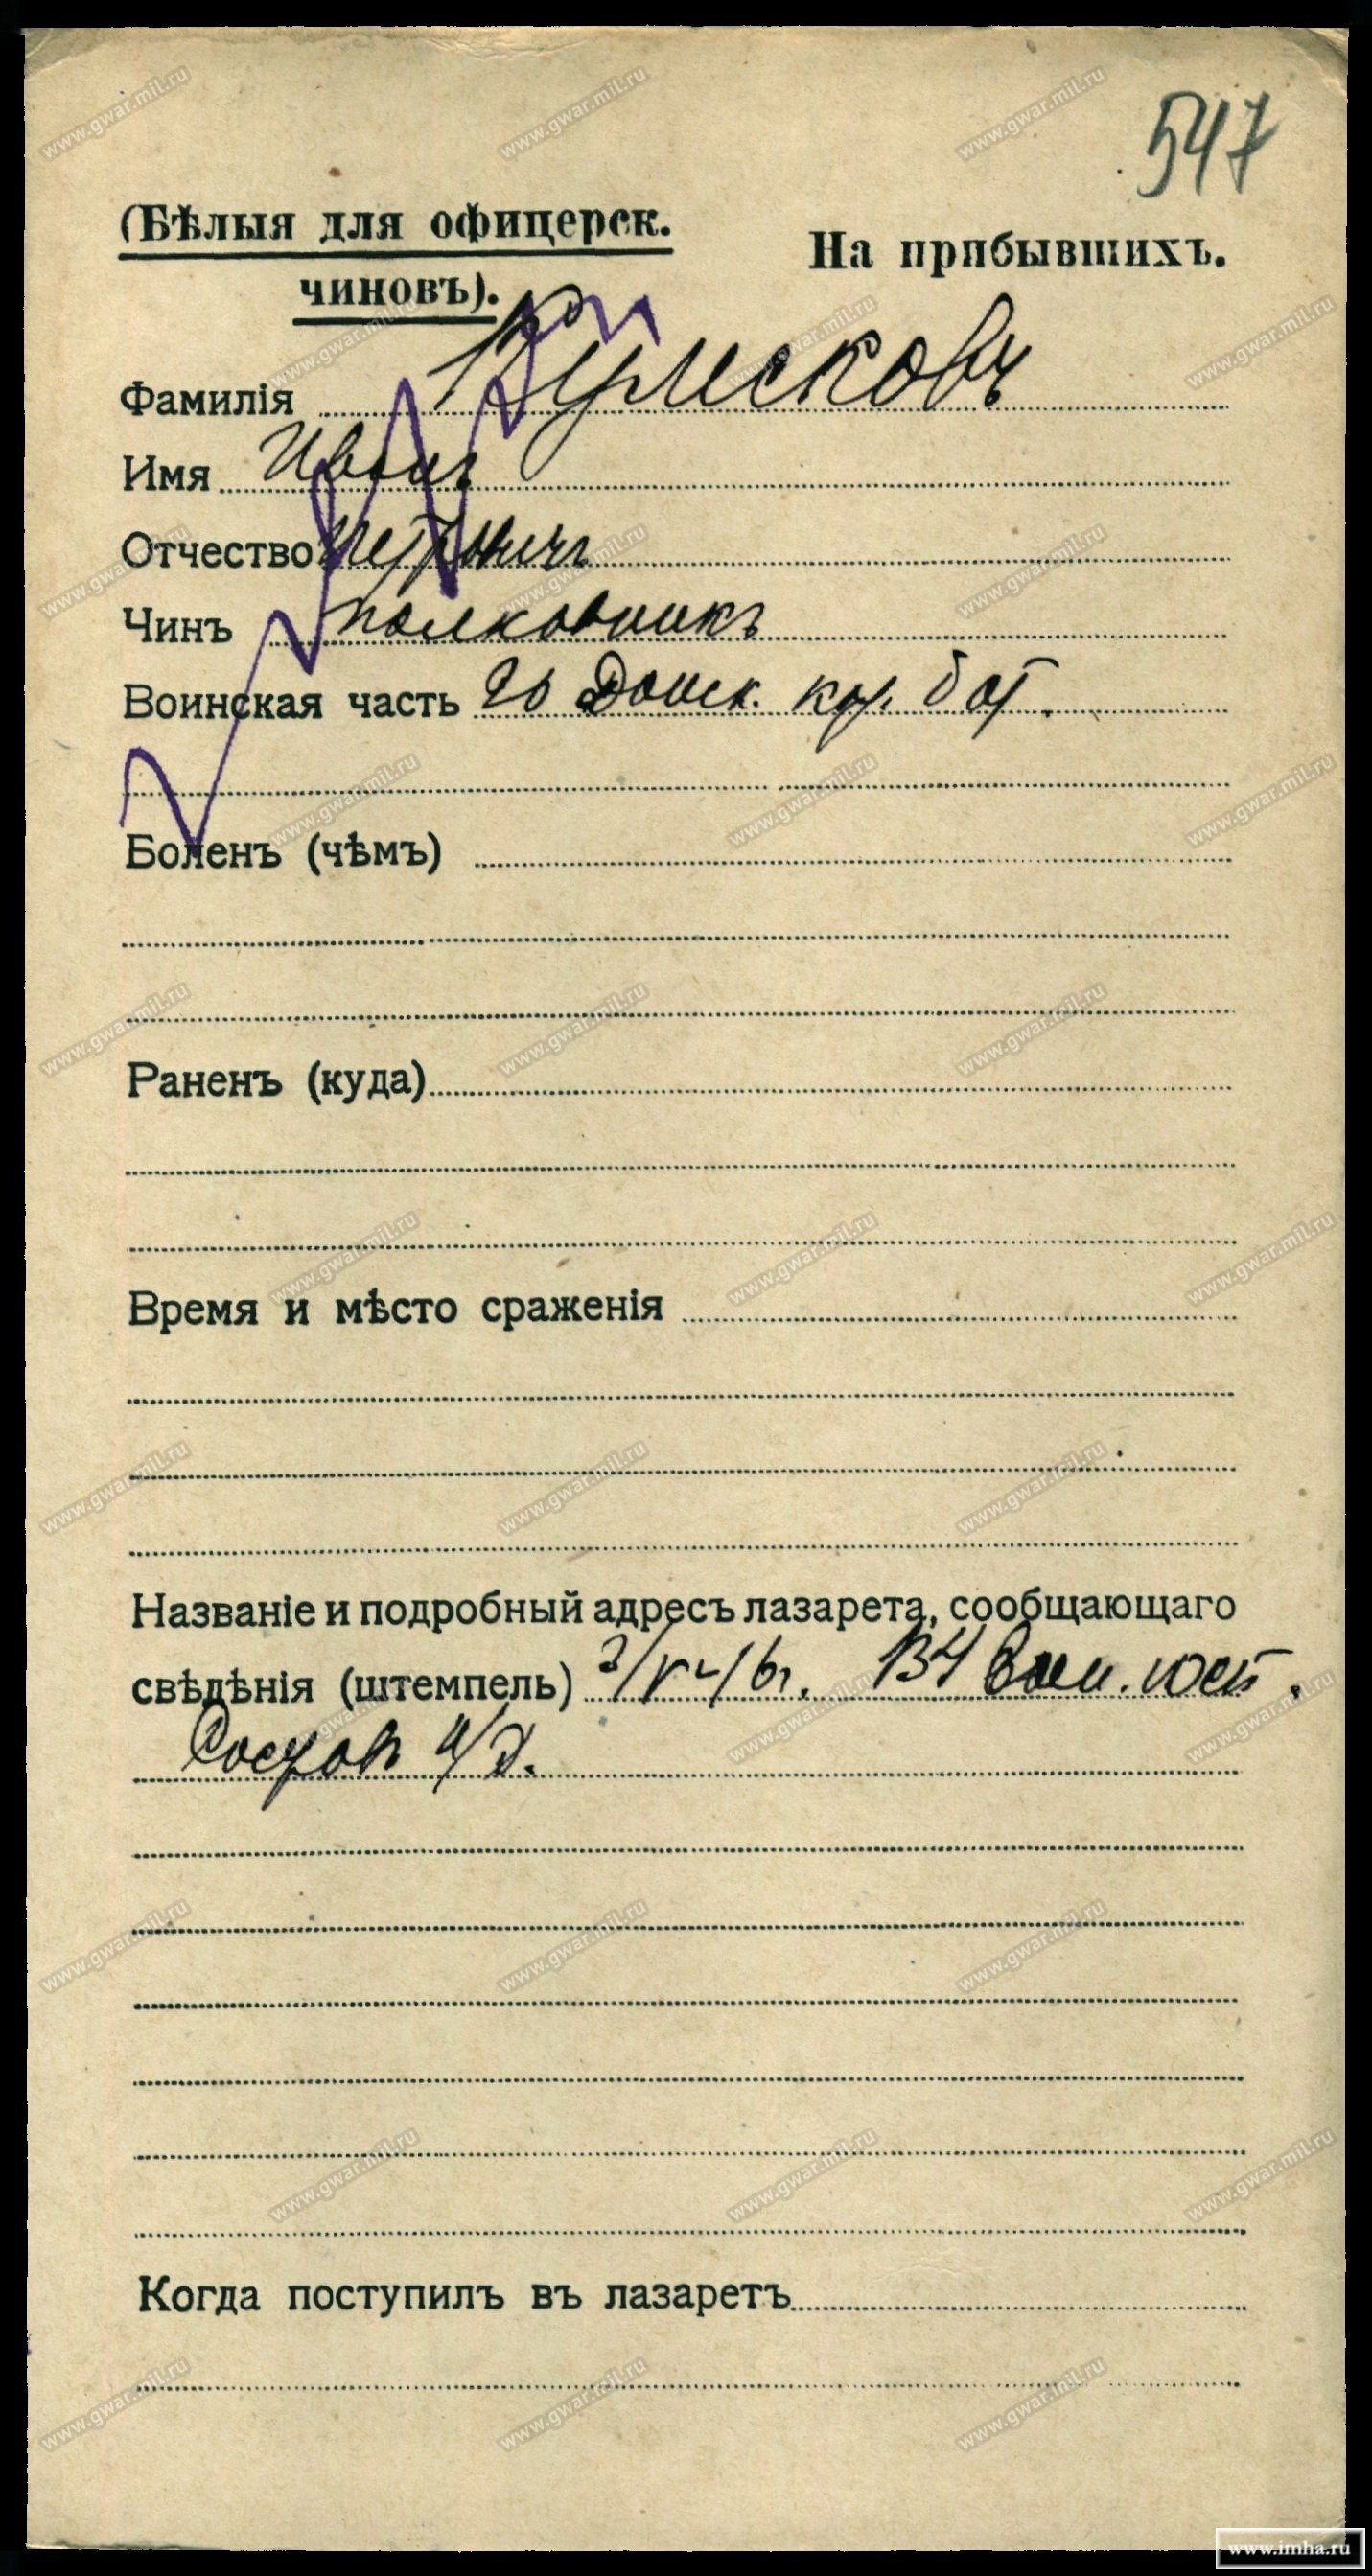 547
(Бѣлыя для офицерск.
чиновъ).
На прибывшихъ.
Фамилія
Имя Иванъ
Отчество Петровичъ
Чинъ полковникъ
Воинская часть Донск. бат.
Боленъ (чѣмъ)
Раненъ (куда)
Время и мѣсто сраженія
Названіе и подробный адресъ лазарета, сообщающаго
свѣдѣнія (штемпель) 134
Когда поступилъ въ лазаретъ
www.gwar.mil.ru
www.imha.ru